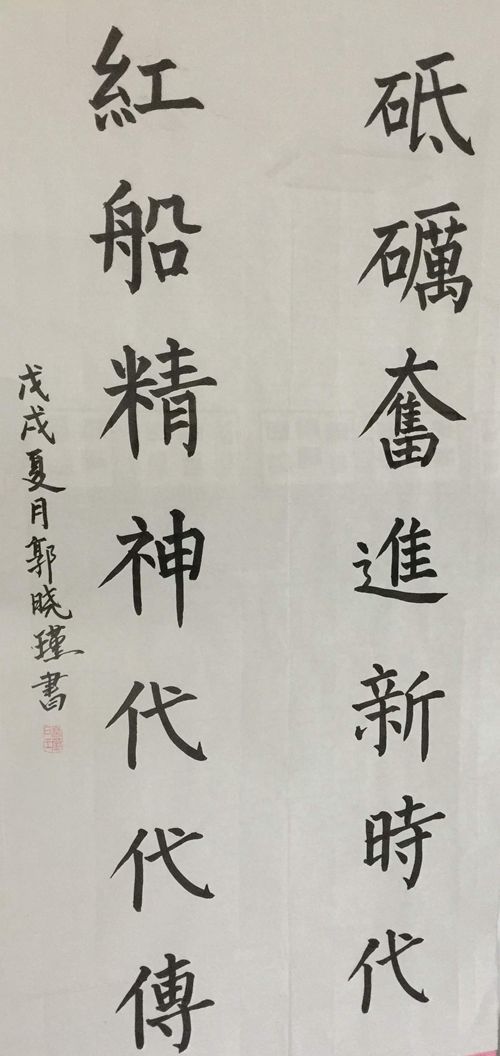 砥礪奮進新時代
紅船精神代代傳
戊戌夏月郭晓瑾書